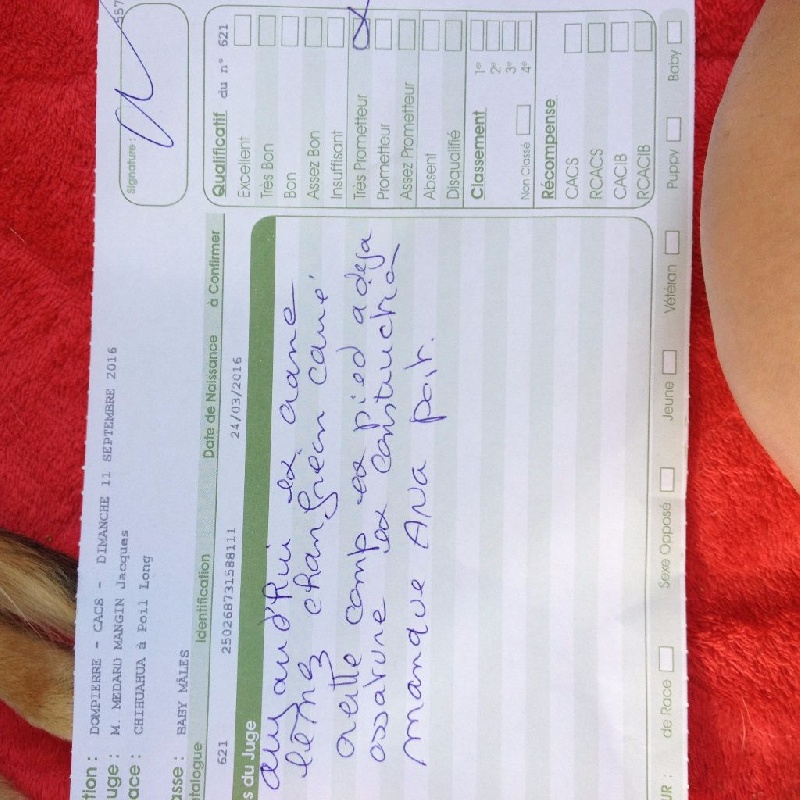 tion : DOMPIERRE - CACS - DIMANCHE 11 SEPTEMBRE 2016
uge : M. MEDARD MANGIN Jacques
ace : CHIHUAHUA à Poil Long
asse : BABY MÂLES
atalogue Identification Date de Naissance à Confirmer
621 250268731588111 24/03/2016
s du Juge
le crane
chanfrein carré
pied a déja
construction
manque poit.
Signature :
557
Qualificatif du n° 621
Excellent
Très Bon
Bon
Assez Bon
Insuffisant
Très Prometteur
Prometteur
Assez Prometteur
Absent
Disqualifié
Classement 1er 2e 3e 4e
Non Classé
Récompense
CACS
RCACS
CACIB
RCACIB
UR : de Race Sexe Opposé Jeune Vétéran Puppy Baby